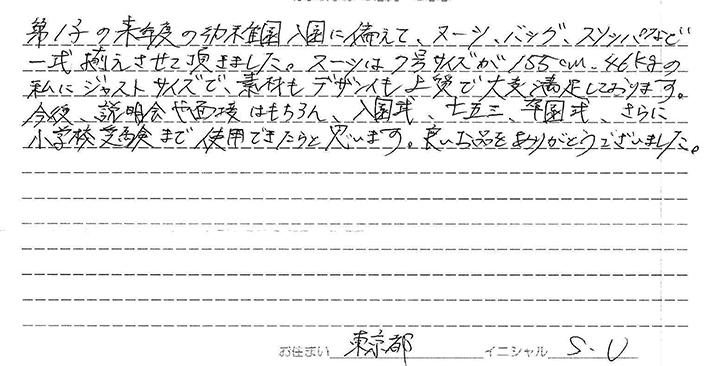 第1子の来年度の幼稚園入園に備えて、スーツ、バッグ、スリッパなど
一式揃えさせて頂きました。スーツは7号サイズが155cm.46kgの
私にジャストサイズで、素材もデザインも上質で大変満足しております。
今後、説明会や面接はもちろん、入園式、七五三、卒園式、さらに
小学校受験まで使用できたらと思います。良いお品をありがとうございました。
お住まい 東京都 イニシャル S.U